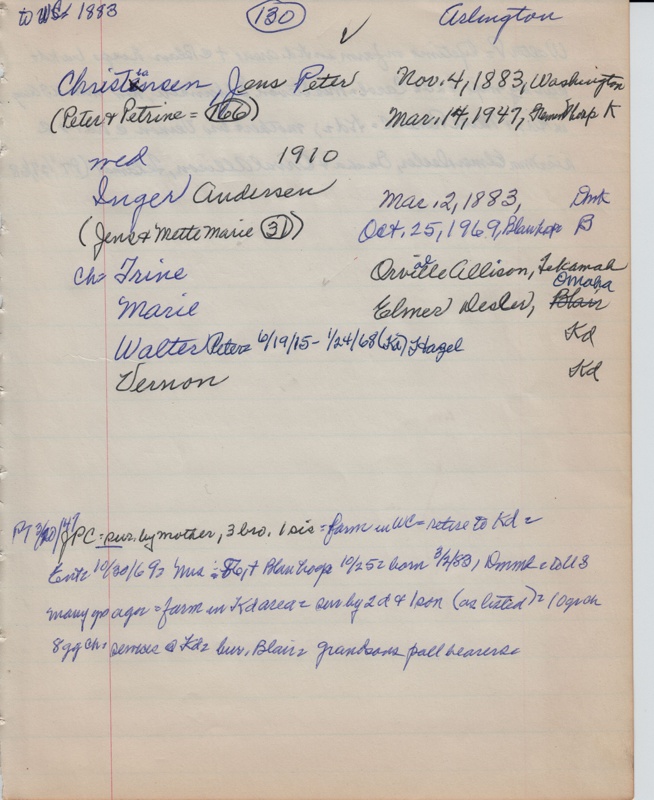 to WS 1883 (130) Arlington
✓
Christensen, Jens Peter Nov. 4, 1883, Washington
(Peter & Petrine = (166)) Mar. 14, 1947, K
med 1910
Inger Andersen Mar. 2, 1883, Dmk
(Jens & Mette Marie (31)) Oct. 25, 1969, Blair hosp B
ch = Trine Orville Allison, Tekamah
Marie Elmer Desler, Omaha Blair
Walter Peter = 6/19/15 - 1/24/68 (Kd) Hazel Kd
Vernon Kd
JPC = sur. by mother, 3 bro. 1 sis = farm in WC = retire to Kd =
Ent = 10/30/69 = Mrs 86, + Blair hosp 10/25 = born 3/2/83, Dmk = to US
many yrs ago = farm in Kd area = sur by 2 d & 1 son (as listed) = 10 gr ch
8 gg ch. service @ Kd = bur. Blair = grandsons pall bearers =